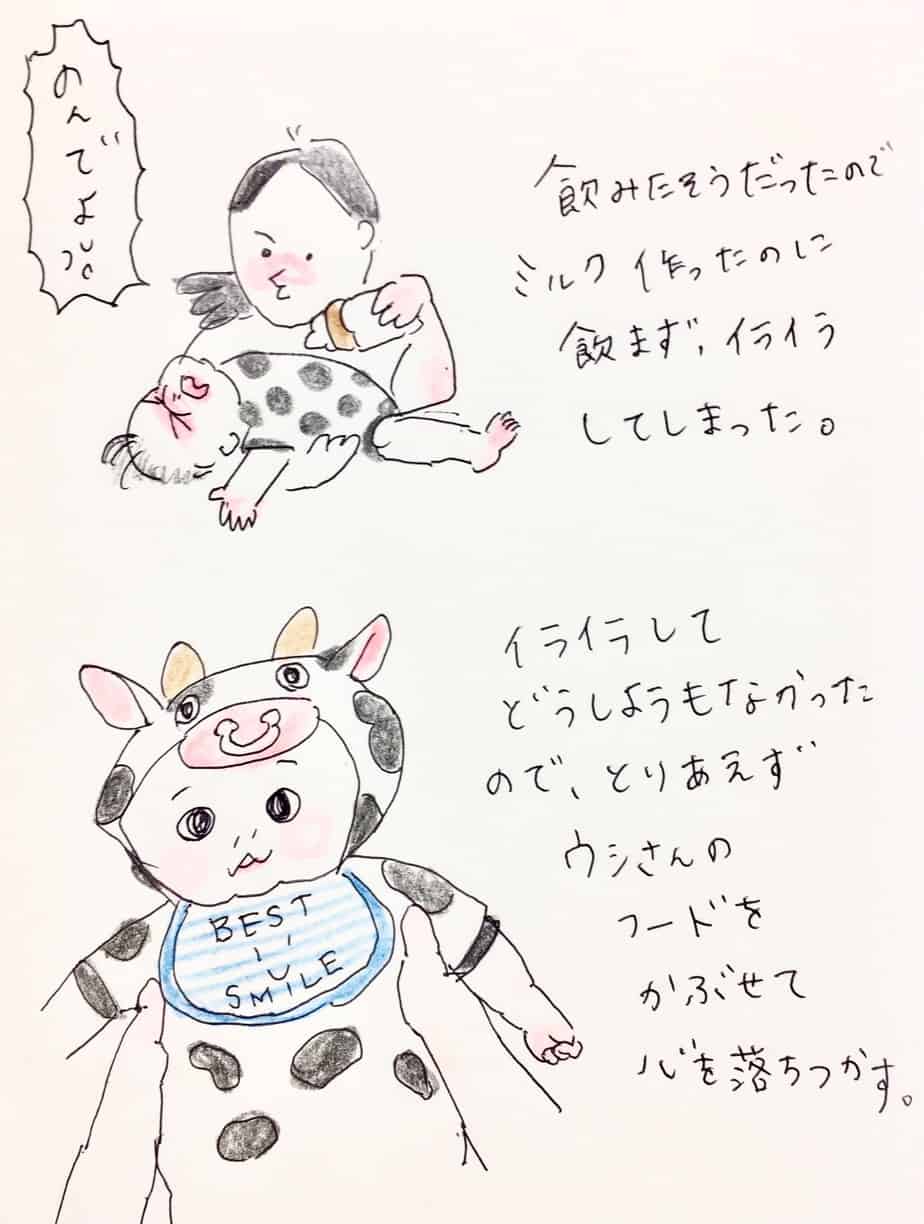 のんでよぉ
飲みたそうだったので
ミルク作ったのに
飲まず、イライラ
してしまった。
イライラして
どうしようもなかった
ので、とりあえず
ウシさんの
フードを
かぶせて
心を落ちつかす。
BEST
SMILE